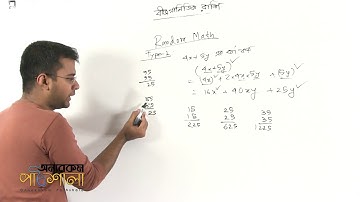 বীজগণিতিক রাশি
Random Math
Type-2
4x+5y এর বর্গ কত
(4x+5y)²
= (4x)² + 2.4x.5y + (5y)²
= 16x² + 40xy + 25y²
95
95
25
85
85
25
15
15
225
25
25
625
35
35
1225
অন্যরকম
পাঠশালা